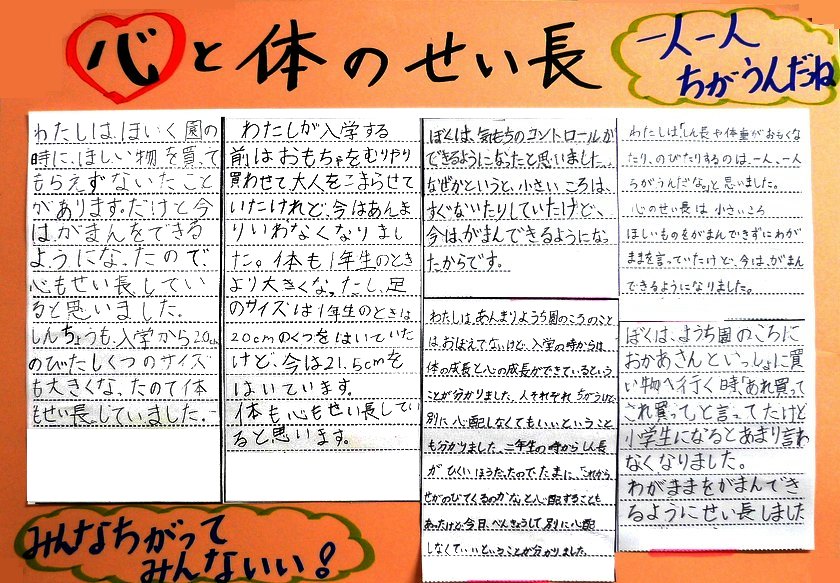 心と体のせい長
一人一人
ちがうんだね
わたしは、ほいく園の
時に、ほしい物を買って
もらえずないたこと
があります。だけど今
は、がまんをできる
ようになったので、
心もせい長してい
ると思いました。
しんちょうも、入学から20cm
のびたしくつのサイズ
も大きくなったので体
もせい長していました。
わたしが入学する
前はおもちゃをむりやり
買わせて大人をこまらせて
いたけれど、今はあんま
りいわなくなりまし
た。体も1年生のとき
より大きくなったし、足
のサイズは1年生のときは
20cmのくつをはいていた
けど、今は21.5cmを
はいています。
体も心もせい長してい
ると思います。
ぼくは、気もちのコントロールが
できるようになったと思いました。
なぜかというと、小さいころは、
すぐないたりしていたけど、
今は、がまんできるようになっ
たからです。
わたしは、あんまりようち園のころのこと
はおぼえてないけど、入学の時からは
体の成長と心の成長ができているという
ことが分かりました。人それぞれちがうけど、
別に心配しなくてもいいということ
も分かりました。二年生の時からしん長
がひくいほうだったので、たまに、「これから
せがのびてくるのかな」と心配することも
あったけど今日、べんきょうして、別に心配
しなくていいということが分かりました。
わたしは「しん長や体重がおもくな
たり、のびたりするのは、一人、一人
ちがうんだな。」と思いました。
心のせい長は小さいころ
ほしいものをがまんできずにわが
ままを言っていたけど、今は、がまん
できるようになりました。
ぼくは、ようち園のころに
おかあさんといっしょに買
い物へ行く時、「あれ買って
これ買って」と言ってたけど
小学生になるとあまり言わ
なくなりました。
わがままをがまんでき
るようにせい長しました
みんなちがって
みんないい!